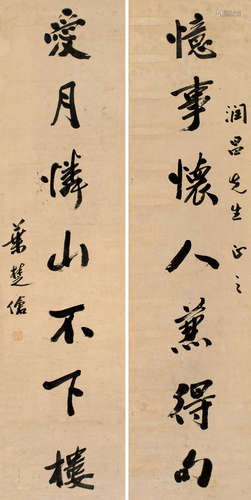 潤昌先生正之
憶事懷人蒹得句
愛月憐山不下樓
葉楚傖